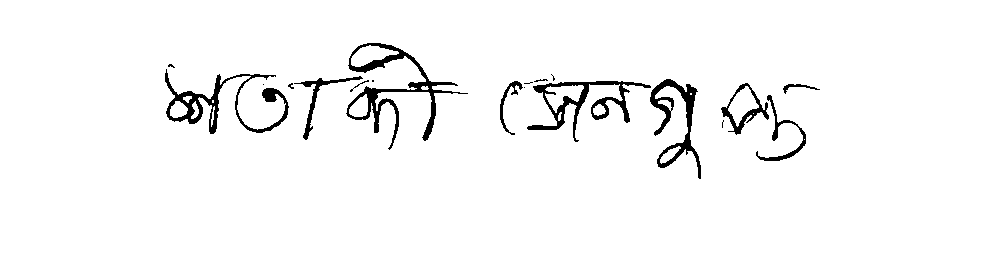 শতাব্দী সেনগুপ্ত